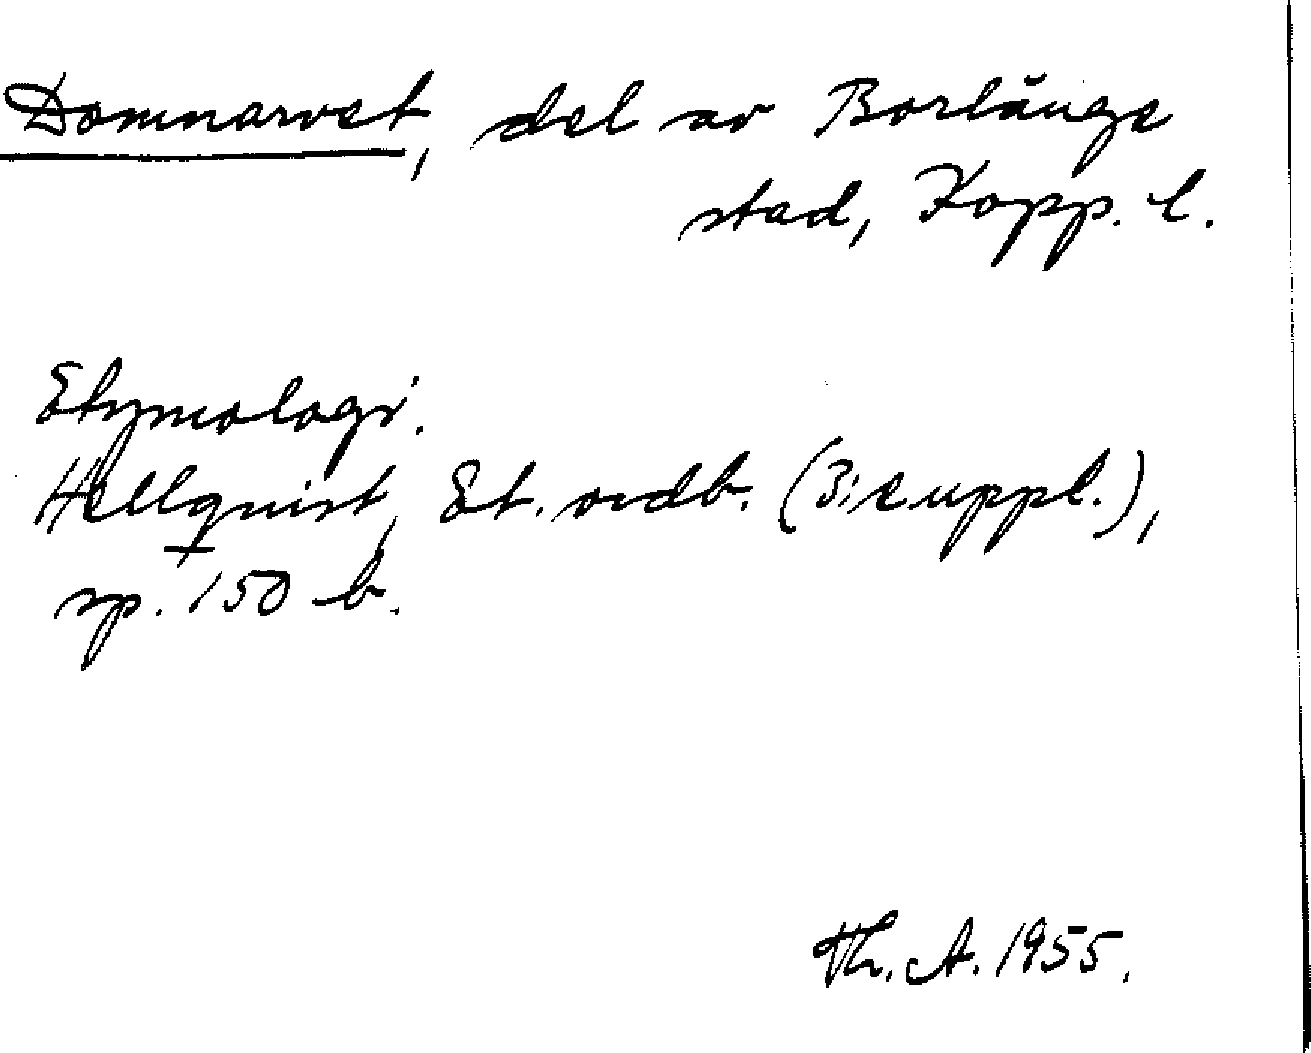 Domnarvet, del av Borlänge
stad, Kopp. l.
Etymologi.
Hellquist, Et. ordb. (3:e uppl.),
sp. 150 b.
Th. A. 1955.